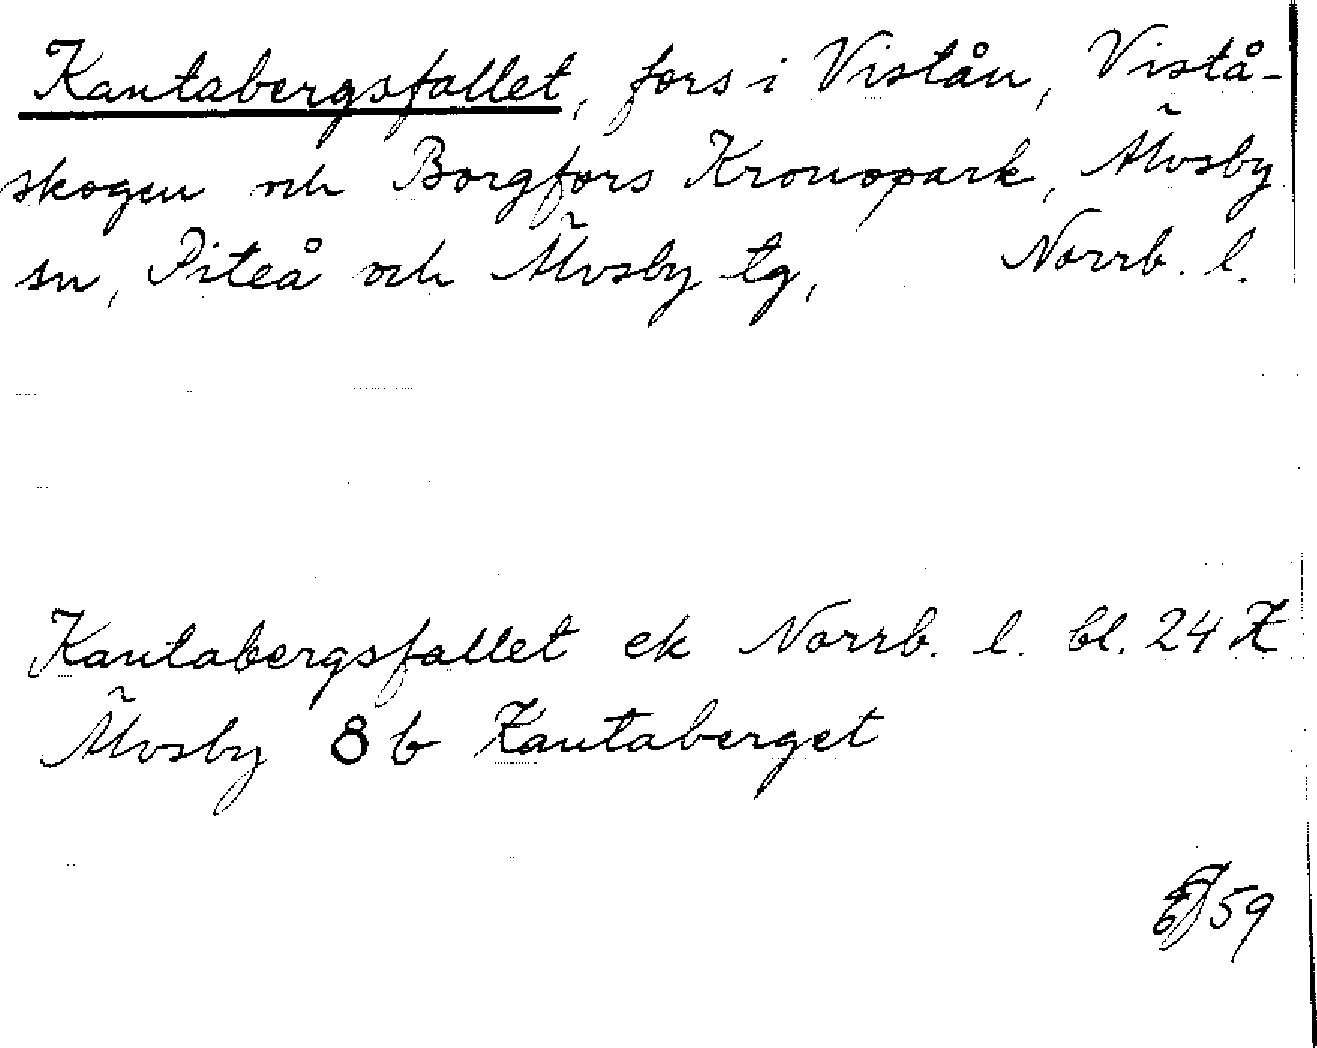 Kantabergsfallet, fors i Vistån, Vistå-
skogen och Borgfors Kronopark, Älvsby
sn, Piteå och Älvsby tg, Norrb. l.
Kantabergsfallet ek Norrb. l. bl. 24 Z
Älvsby 8 b Kantaberget
59